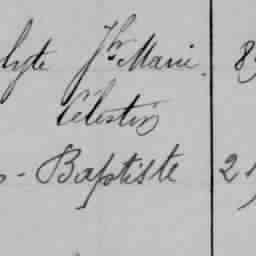 lyte Jh Marie 8
Célestin
- Baptiste 2